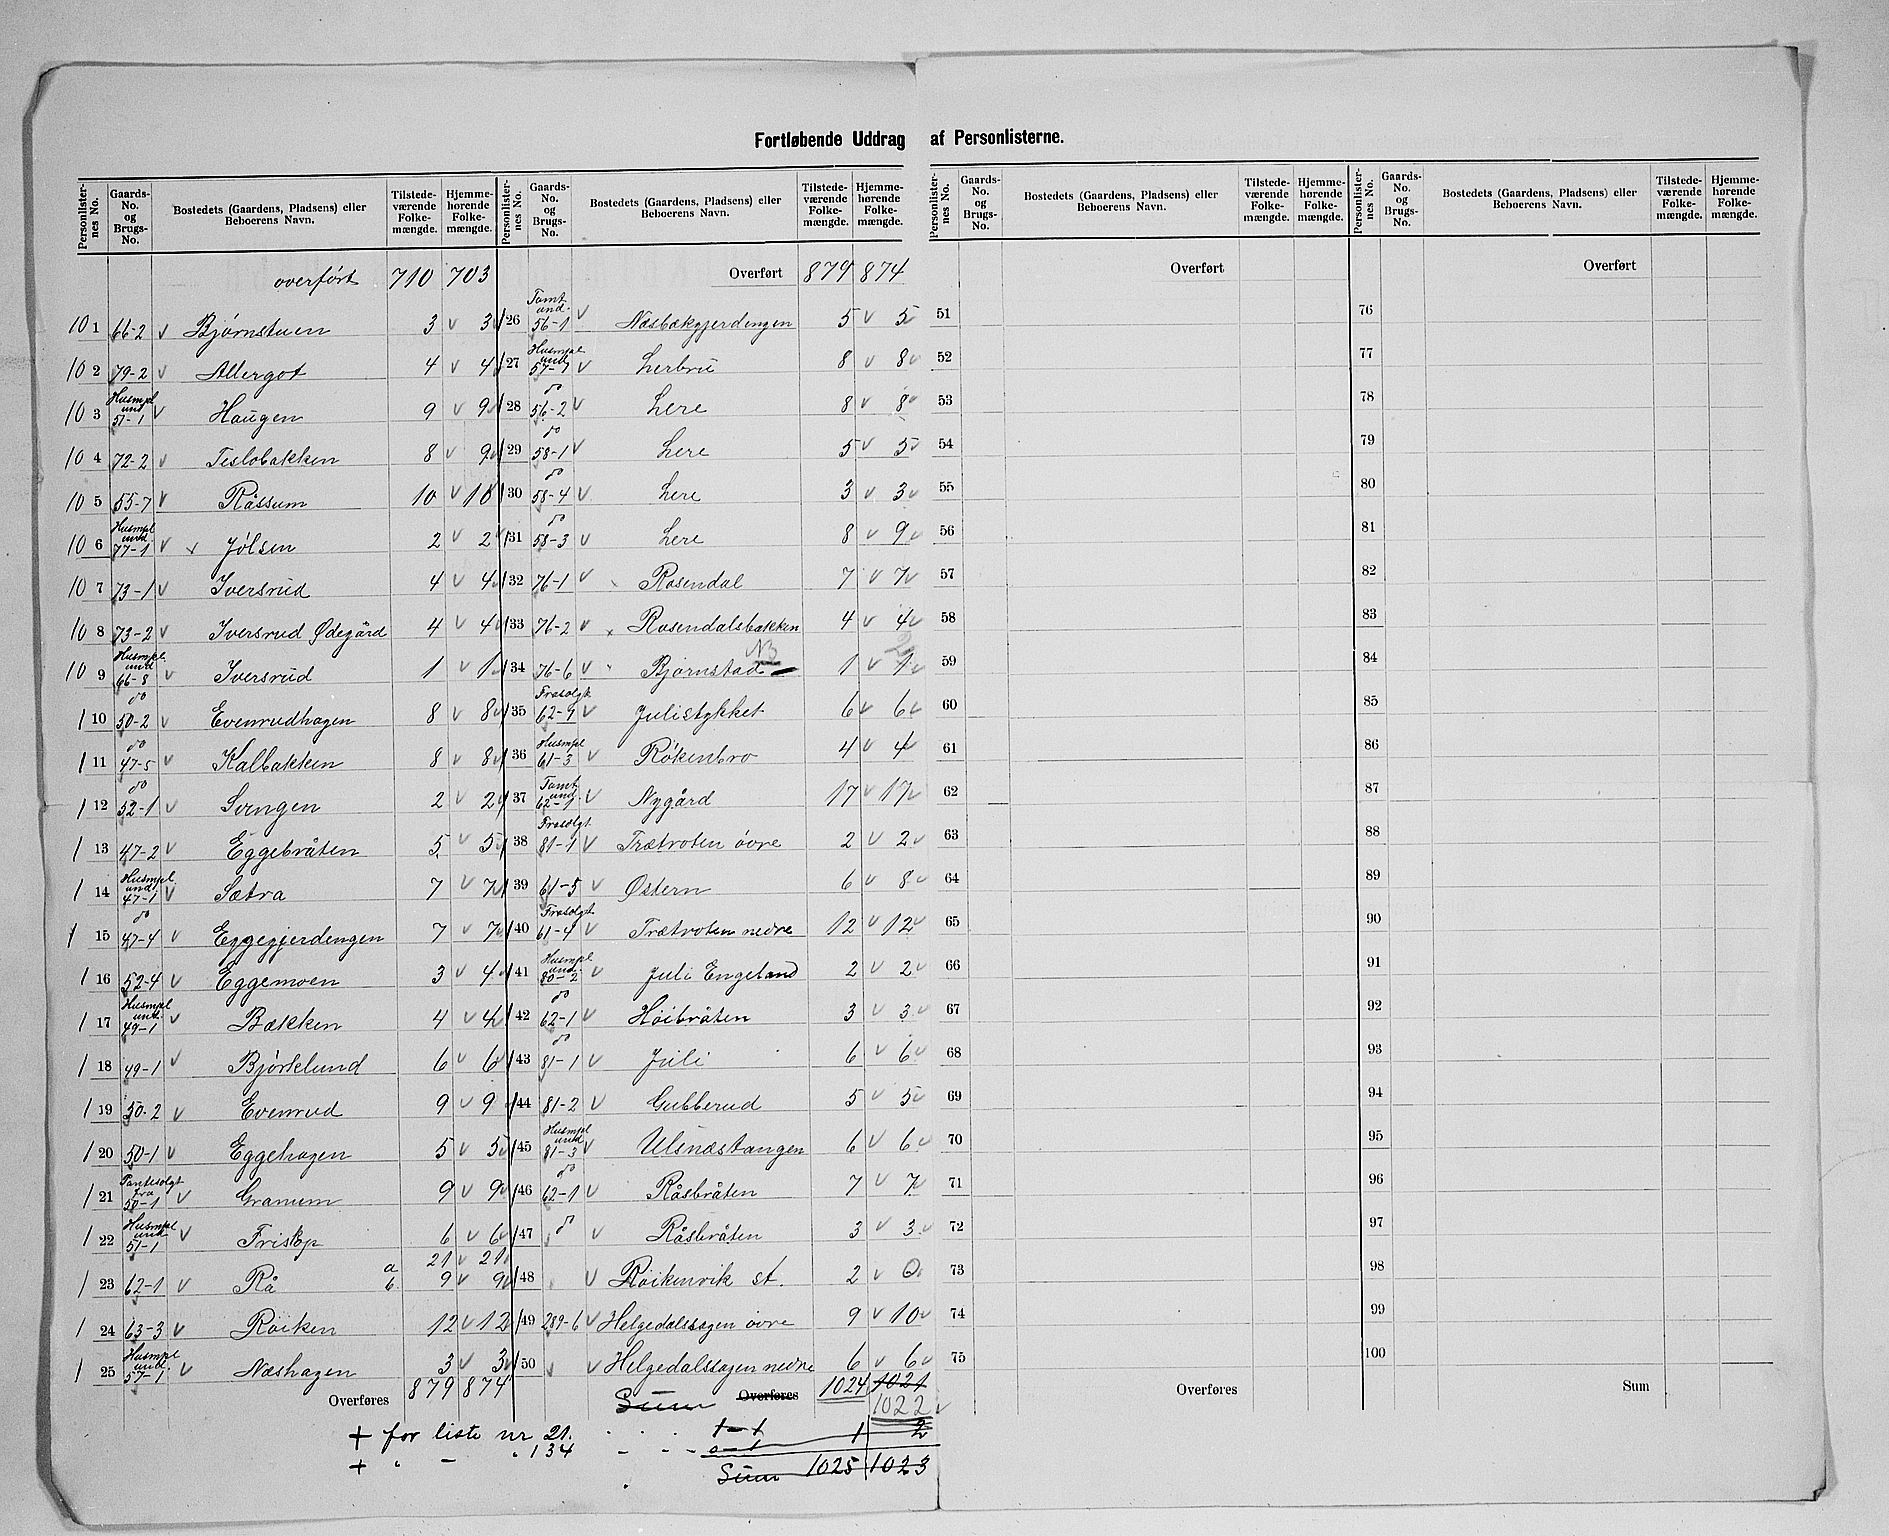 Fortløbende Uddrag af Personlisterne.
Personlisternes No. | Gaards-No. og Brugs-No. | Bostedets (Gaardens, Pladsens) eller Beboerens Navn. | Tilstedeværende Folkemængde. | Hjemmehørende Folkemængde.
overført 710 703
10 1 66-2 v Bjørnstuen 3 v 3 v
10 2 79-2 v Allergot 4 v 4 v
10 3 Husmpl und 51-1 v Haugen 9 v 9 v
10 4 72-2 v Teslobakken 8 v 9 v
10 5 55-7 v Råssum 10 v 10
10 6 Husmpl und 77-1 v x Jølsen 2 v 2 v
10 7 73-1 v Iversrud 4 v 4 v
10 8 73-2 v Iversrud Ødegård 4 v 4 v
10 9 Husmpl und 66-8 v Iversrud 1 v 1 v
1 10 do 50-2 v Evenrudhagen 8 v 8 v
1 11 do 47-5 v Kalbakken 8 v 8 v
1 12 do 52-1 v Svingen 2 v 2 v
1 13 47-2 v Eggebråten 5 v 5 v
1 14 Husmpl und 47-1 v Sætra 7 v 7 v
1 15 do 47-4 v Eggegjerdengen 7 v 7 v
1 16 52-4 v Eggemoen 3 v 4 v
1 17 Husmpl und. 49-1 v Bækken 4 v 4 v
1 18 49-1 v Bjørklund 6 v 6 v
1 19 50-2 v Evenrud 9 v 9
1 20 50-1 v Eggehagen 5 v 5 v
1 21 Pantesolgt fra 50-1 v Granum 9 v 9 v
1 22 Husmpl und 51-1 v Friskop 6 v 6 v
1 23 62-1 v Rå a 21 v 21
b 9 v 9 v
1 24 63-3 v Røiken 12 v 12 v
1 25 Husmpl und. 57-1 v Næshagen 3 v 3 v
Overføres 879 874
Personlisternes No. | Gaards-No. og Brugs-No. | Bostedets (Gaardens, Pladsens) eller Beboerens Navn. | Tilstedeværende Folkemængde. | Hjemmehørende Folkemængde.
Overført 879 874
1 26 Tomt und. 56-1 v Næsbakgjerdengen 5 v 5 v
1 27 Husmpl und 57-1 v Lerbru 8 v 8 v
1 28 do 56-2 v Lere 8 v 8 v
1 29 do 58-1 v Lere 5 v 5 v
1 30 do 58-4 v Lere 3 v 3 v
1 31 do 58-3 v Lere 8 v 9 v
1 32 76-1 v Rosendal 7 v 7 v
1 33 76-2 v x Rosendalsbakken 4 v 4 v
NB 2
1 34 76-6 v Bjørnstad 1 v 1 v
1 35 Frasolgt 62-9 v Julistykket 6 v 6 v
1 36 Husmpl 61-3 v Rökenbro 4 v 4
1 37 Tomt und. 62-9 v Nygård 17 v 17 v
1 38 Frasolgt 81-1 v Trætroten övre 2 v 2 v
1 39 61-5 v Østern 6 v 8 v
1 40 Frasolgt 61-4 v Trætroten nedre 12 v 12
1 41 Husmpl und. 80-2 v Juli Engeland 2 v 2 v
1 42 do 62-1 v Höibråten 3 v 3 v
1 43 do 81-1 v Juli 6 v 6 v
1 44 81-2 v Gubberud 5 v 5 v
1 45 Husmpl und 81-3 v Ulsnæstangen 6 v 6 v
1 46 do 62-1 v Råsbråten 7 v 7 v
1 47 do v Råsbråten 3 v 3 v
1 48 v Röikenvik st. 2 v 0
1 49 289-6 v Helgedalshagen övre 9 v 10 v
1 50 v Helgedalshagen nedre 6 v 6 v
Sum Overføres 1024 1021
1022 v
+ for liste nr 21. 1-1 1 2
+ " - " 134 - - - 0-1
Sum 1025 1023
Personlisternes No. | Gaards-No. og Brugs-No. | Bostedets (Gaardens, Pladsens) eller Beboerens Navn. | Tilstedeværende Folkemængde. | Hjemmehørende Folkemængde.
Overført
51
52
53
54
55
56
57
58
59
60
61
62
63
64
65
66
67
68
69
70
71
72
73
74
75
Overføres
Personlisternes No. | Gaards-No. og Brugs-No. | Bostedets (Gaardens, Pladsens) eller Beboerens Navn. | Tilstedeværende Folkemængde. | Hjemmehørende Folkemængde.
Overført
76
77
78
79
80
81
82
83
84
85
86
87
88
89
90
91
92
93
94
95
96
97
98
99
100
Sum